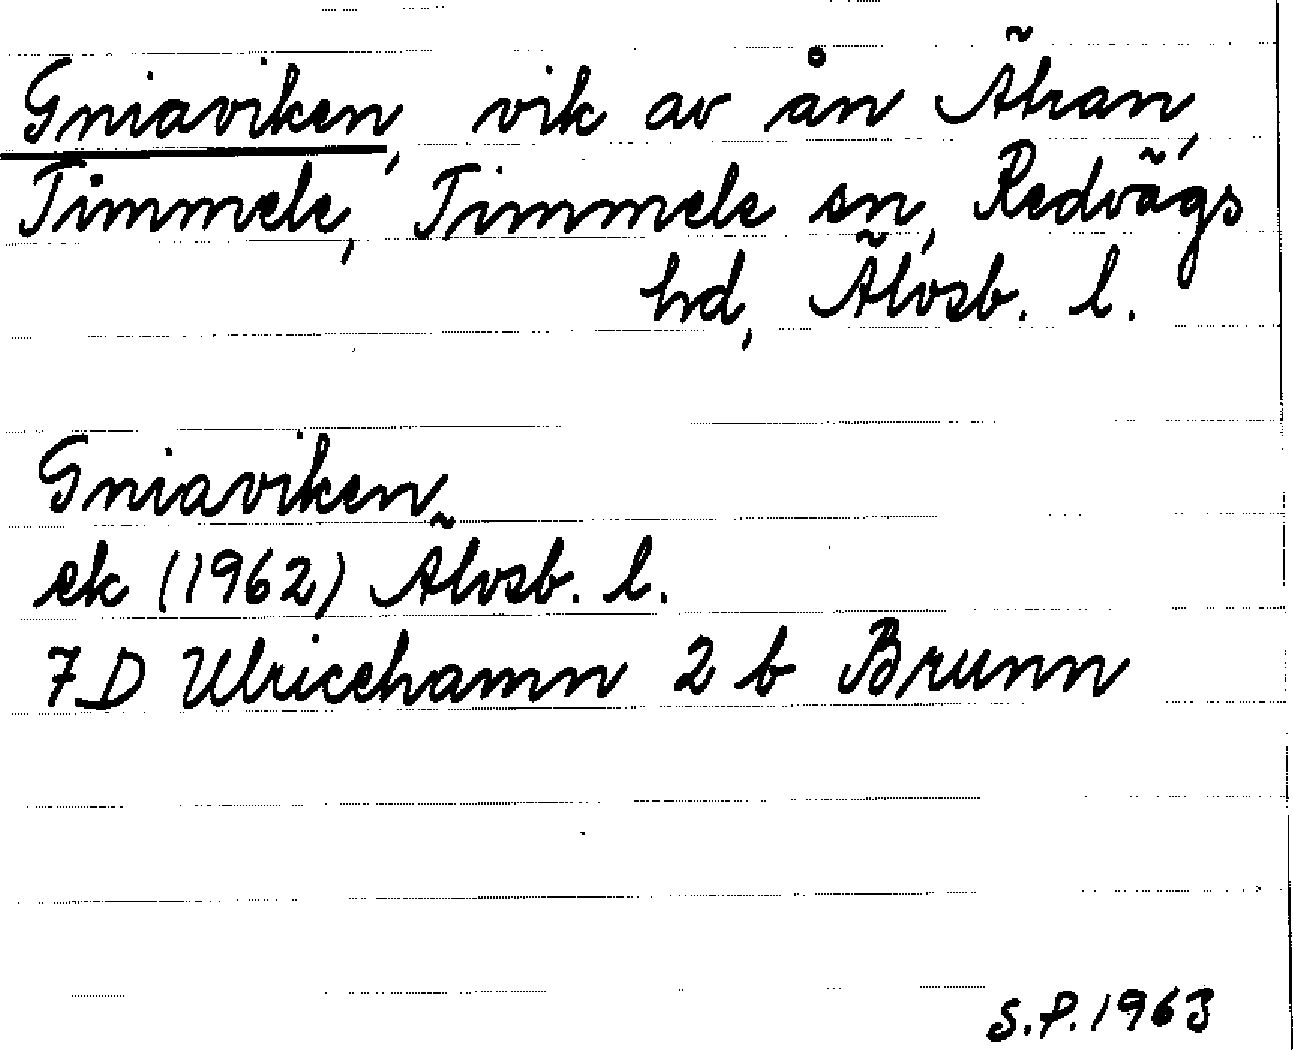 Gniaviken, vik av ån Ätran,
Timmele, Timmele sn, Redvägs
hd, Älvsb. l.
Gniaviken
ek (1962) Älvsb. l.
7 D Ulricehamn 2 b Brunn
S.P. 1963